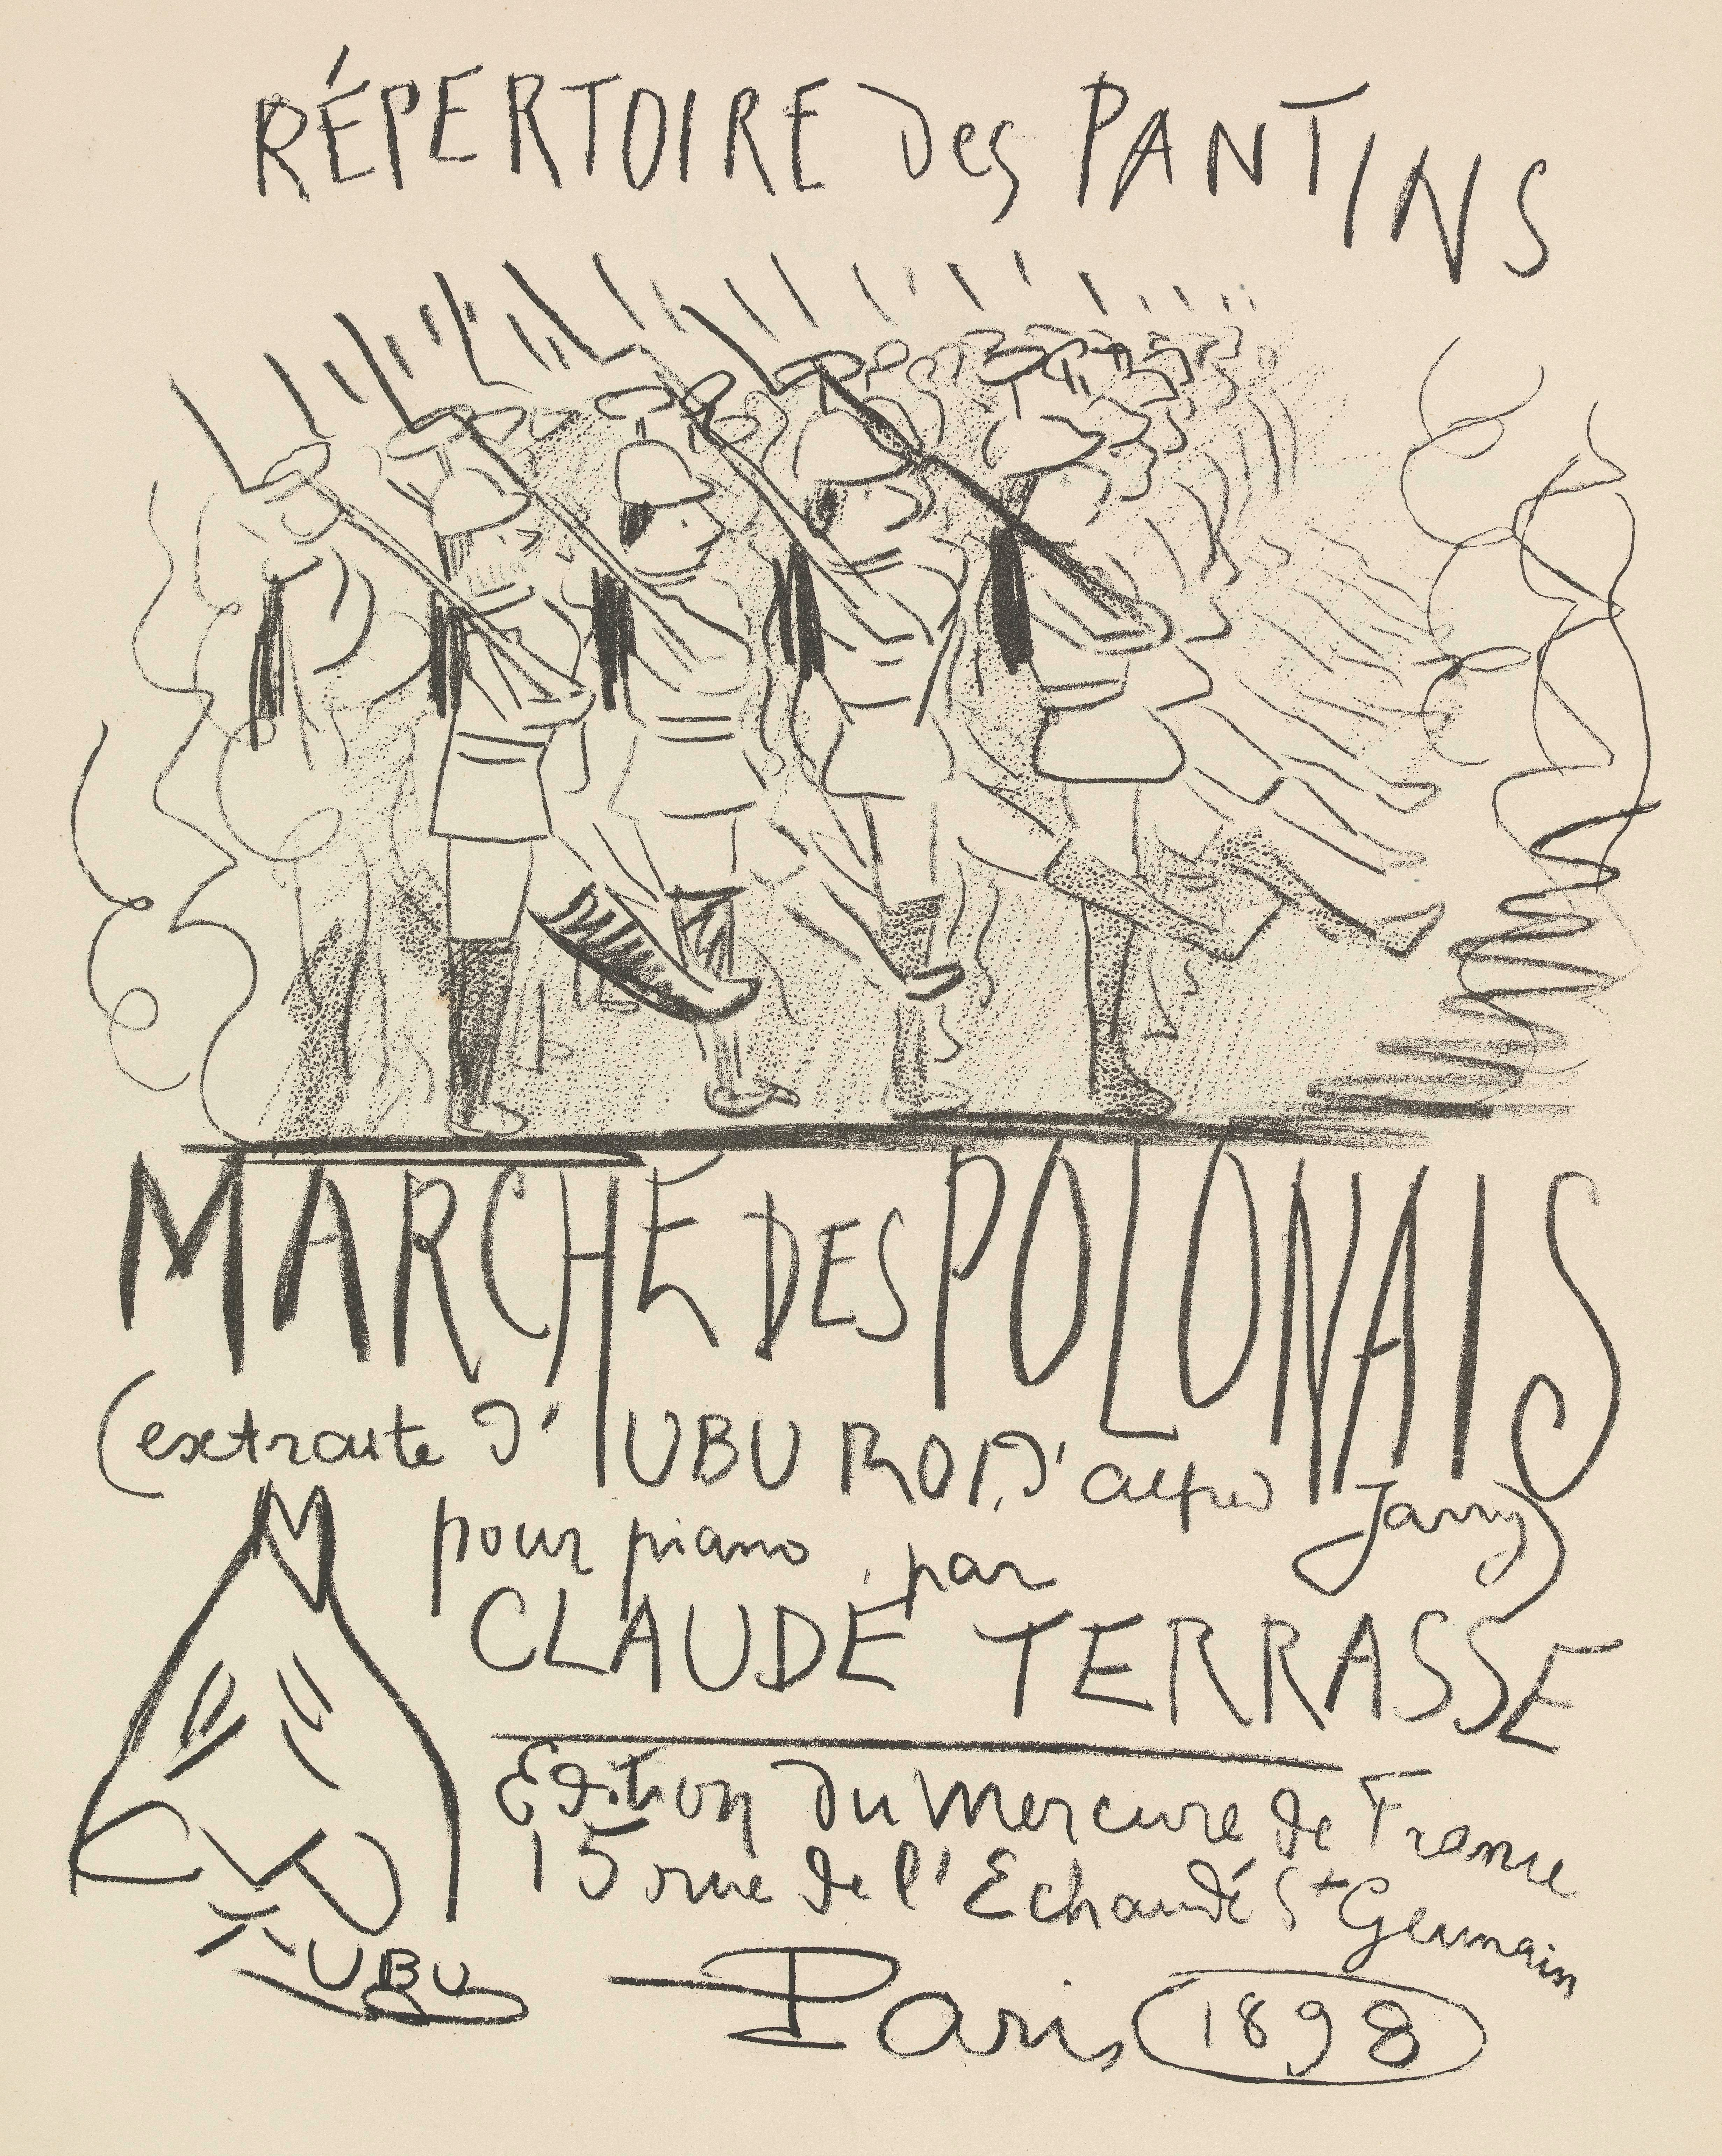 RÉPERTOIRE des PANTINS
MARCHE DES POLONAIS
(extraite d'UBU ROI, d'alfred Jarry)
pour piano par
CLAUDE TERRASSE
Edition du Mercure de France
15 rue de l'Echaudé St Germain
UBU
Paris 1898